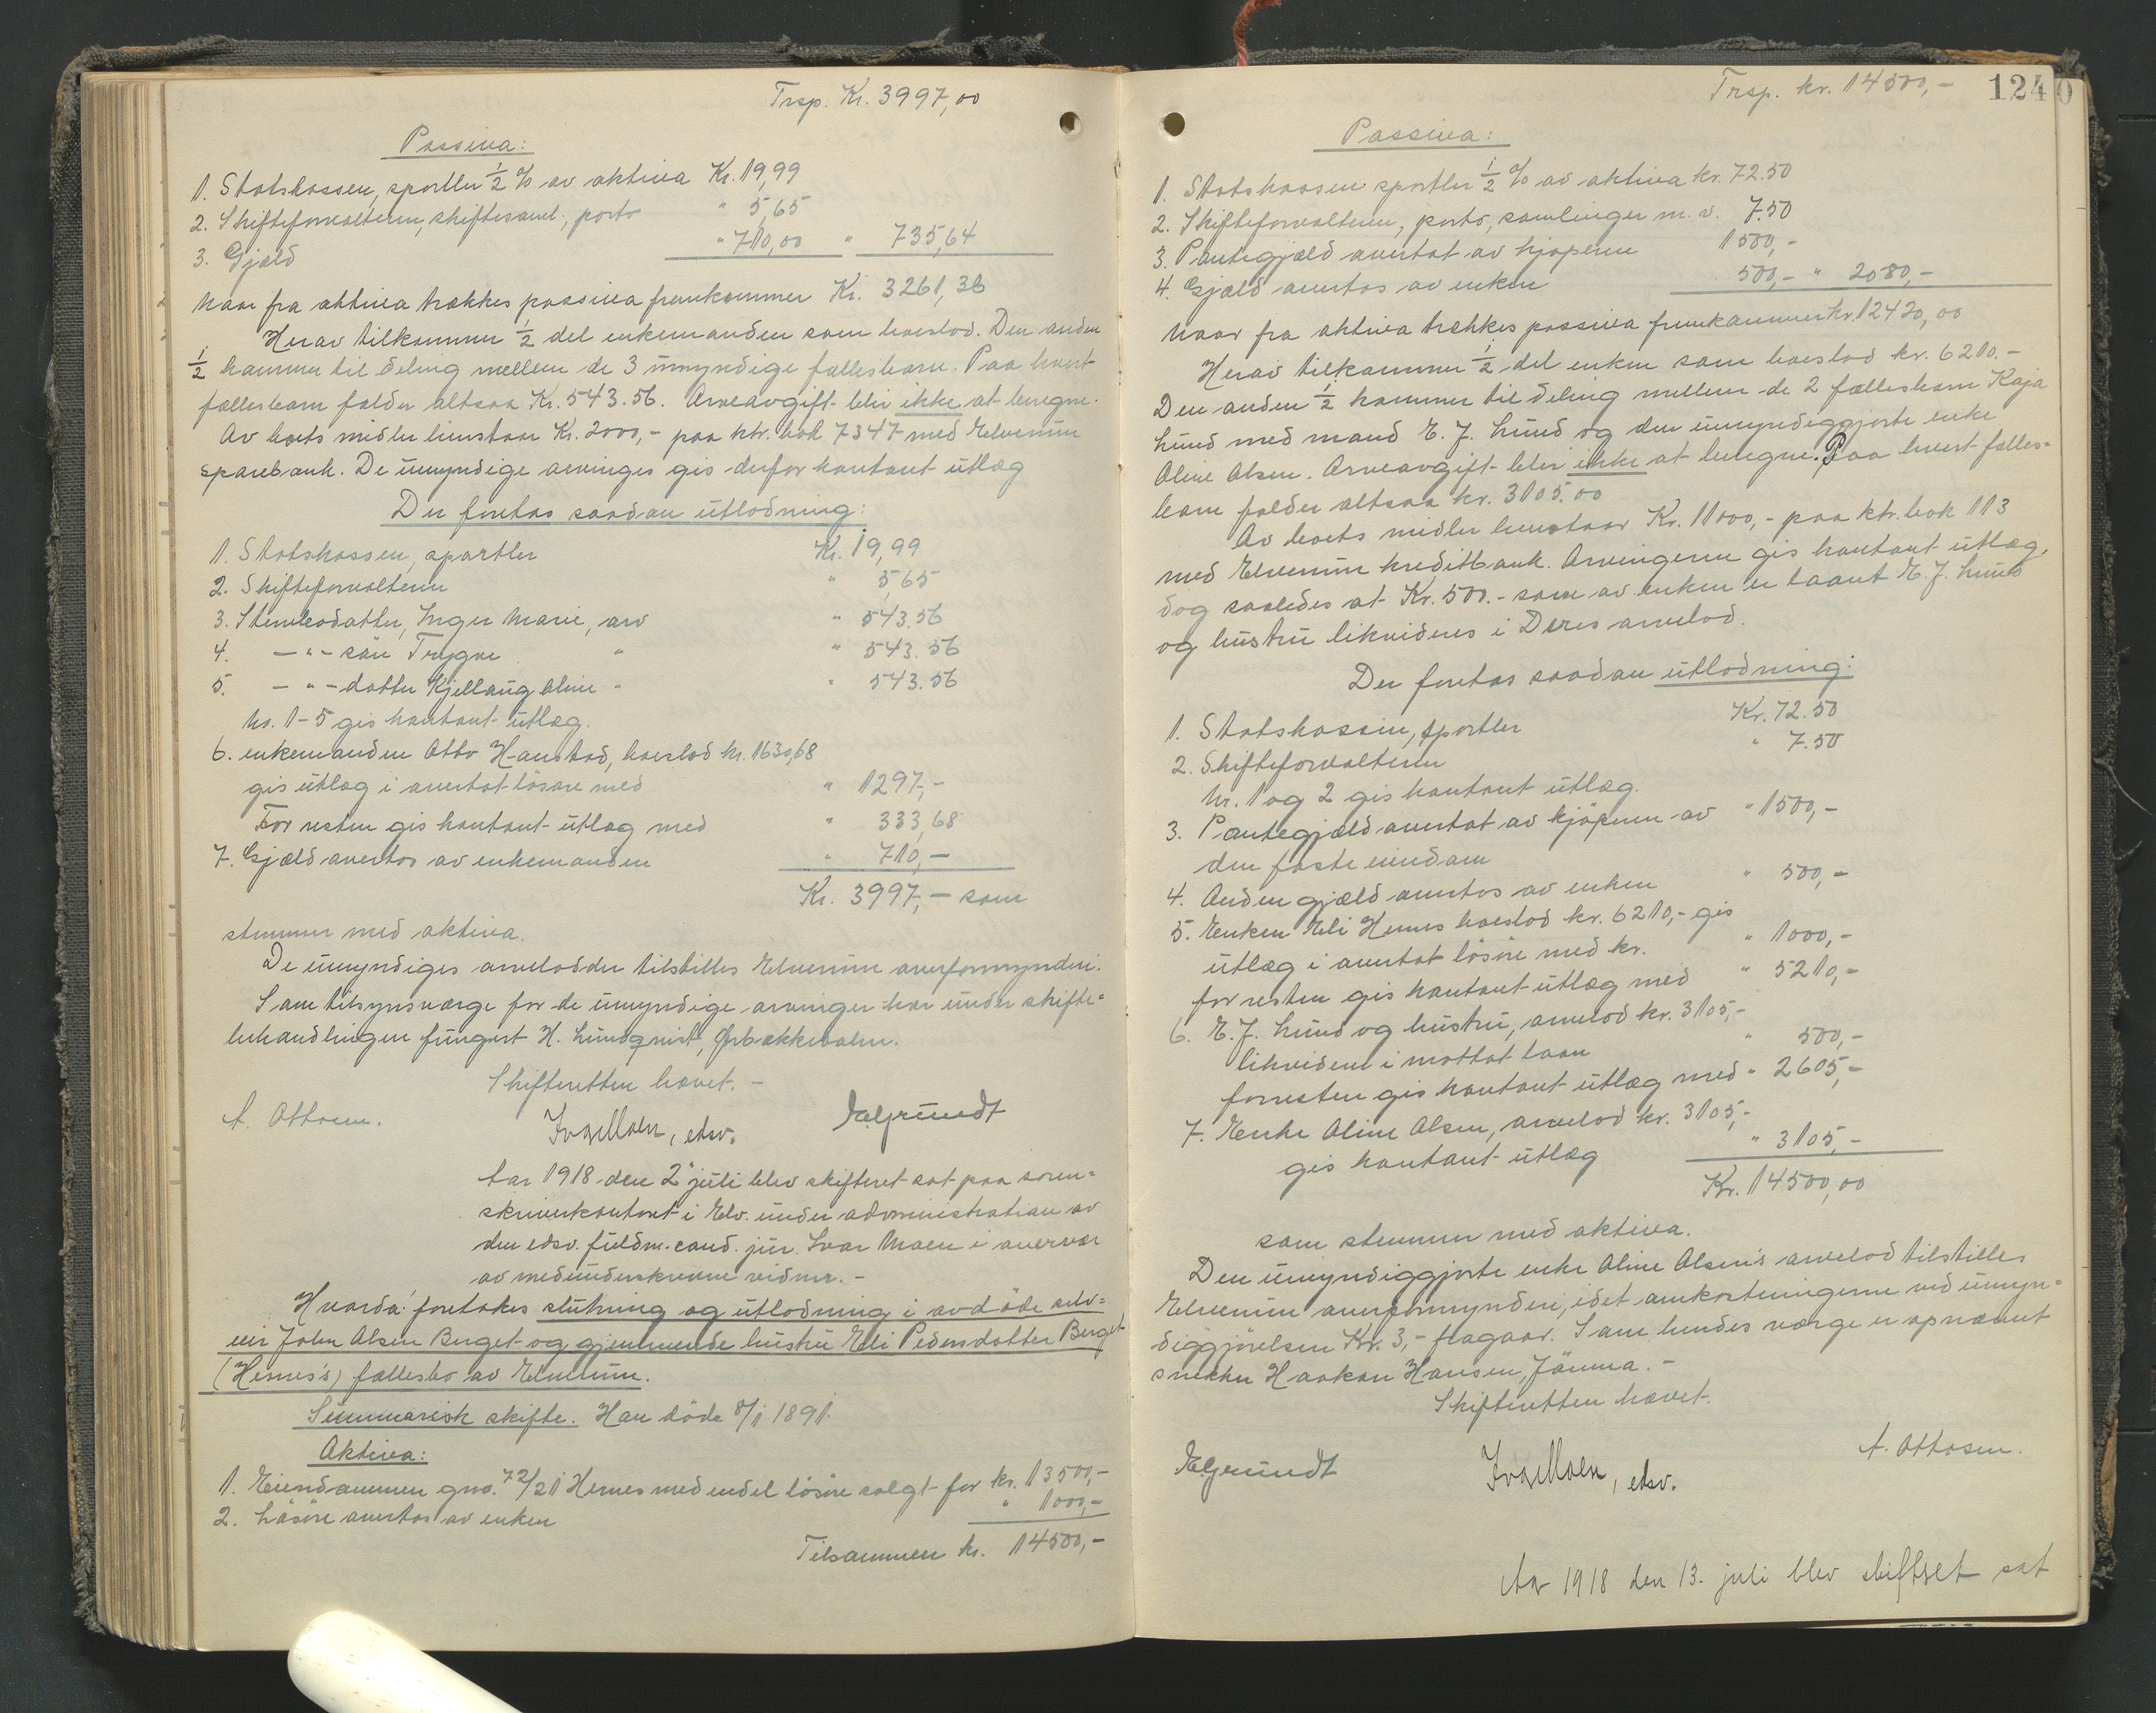 Trsp. Kr. 3997,00
Passiva:
1. Statskassen, sportler 1/2 % av aktiva Kr. 19,99
2. Skifteforvalteren, skiftesaml., porto " 5,65
3. Gjæld " 710,00 " 735,64
Naar fra aktiva trækkes passiva fremkommer Kr. 3261,36
Herav tilkommer 1/2 del enkemanden som boeslod. Den anden
1/2 kommer til deling mellem de 3 umyndige fællesbarn. Paa hvert
fællesbarn falder altsaa Kr. 543.56. Arveavgift blir ikke at beregne.
Av boets midler henstaar Kr. 2000,- paa ktr. bok 7347 med Elverum
sparebank. De umyndige arvinger gis derfor kontant utlæg
Der foretas saadan utlodning:
1. Statskassen, sportler Kr. 19,99
2. Skifteforvalteren " 5,65
3. Stervbodatter, Inger Marie, arv " 543.56
4. —"— sön Trygve " " 543.56
5. —"— datter Kjellaug Aline " " 543.56
Nr. 1-5 gis kontant utlæg.
6. enkemanden Otto Hanstad, boeslod kr. 1630,68
gis utlæg i overtat lösöre med " 1297,-
For resten gis kontant utlæg med " 333,68
7. Gjæld overtas av enkemanden " 710,-
Kr. 3997,- som
stemmer med aktiva.
De umyndiges arvelodder tilstilles Elverum overformynderi.
Som tilsynsværge for de umyndige arvinger har under skifte=
behandlingen fungert H. Lundqvist, Grbækkedalen.
Skifteretten hævet. -
A. Ottosen.
Ivar Moen, edsv.
E. Grundt
Aar 1918 den 2' juli blev skifteret sat paa soren=
skriverkontoret i Elv. under administration av
den edsv. fuldm. cand. jur. Ivar Moen i overvær
av medunderskrevne vidner. -
Hvorda: foretokes slutning og utlodning i avdöde selv=
eier John Olsen Berget og gjenlevende hustru Eli Pedersdatter Berget
(Hernes's) fællesbo av Elverum.
Summarisk skifte. Han döde 8/1 1891.
Aktiva:
1. Eiendommen gno. 72/21 Hernes med endel lösöre solgt for kr. 13500,-
2. Lösöre overtas av enken " 1000,-
Tilsammen kr. 14500,-
Trsp. kr. 14500,-
1240
Passiva:
1. Statskassen sportler 1/2 % av aktiva kr. 72.50
2. Skifteforvalteren, porto, samlinger m. v. 7.50
3. Pantegjæld overtat av kjøperen 1500,-
4. Gjæld overtas av enken 500,- " 2080,-
Naar fra aktiva trækkes passiva fremkommer kr. 12420,00
Herav tilkommer 1/2 del enken som boeslod kr. 6210.-
Den anden 1/2 kommer til deling mellem de 2 fællesbarn Kaja
Lund med mand E. J. Lund og den umyndiggjorte enke
Oline Olsen. Arveavgift blir ikke at beregne. Paa hvert fælles=
barn falder altsaa kr. 3105.00
Av boets midler henstaar Kr. 11000,- paa ktr. bok 113
med Elverum kreditbank. Arvingerne gis kontant utlæg,
dog saaledes at Kr. 500.- som av enken er laant E. J. Lund
og hustru likvideres i Deres arvelod.
Der foretas saadan utlodning:
1. Statskassen, sportler Kr. 72.50
2. Skifteforvalteren " 7.50
Nr. 1 og 2 gis kontant utlæg.
3. Pantegjæld overtat av kjöperen av " 1500,-
den faste eiendom
4. Anden gjæld overtas av enken " 500,-
5. Enken Eli Hernes boeslod kr. 6210,- gis
utlæg i overtat lösöre med kr. " 1000,-
for resten gis kontant utlæg med " 5210,-
6. E. J. Lund og hustru, arvelod kr. 3105,-
likvideres i mottat laan " 500,-
forresten gis kontant utlæg med " 2605,-
7. Enke Oline Olsen, arvelod kr. 3105,-
gis kontant utlæg " 3105,-
Kr. 14500,00
som stemmer med aktiva.
Den umyndiggjorte enke Oline Olsen's arvelod tilstilles
Elverum overformynderi, idet omkostningerne ved umyn=
diggjörelsen Kr. 3,- fragaar. Som hendes værge er opnævnt
snekker Haakon Hansen, Jömna. -
Skifteretten hævet.
E. Grundt
Ivar Moen, edsv.
A. Ottosen.
Aar 1918 den 13. juli blev skifteret sat